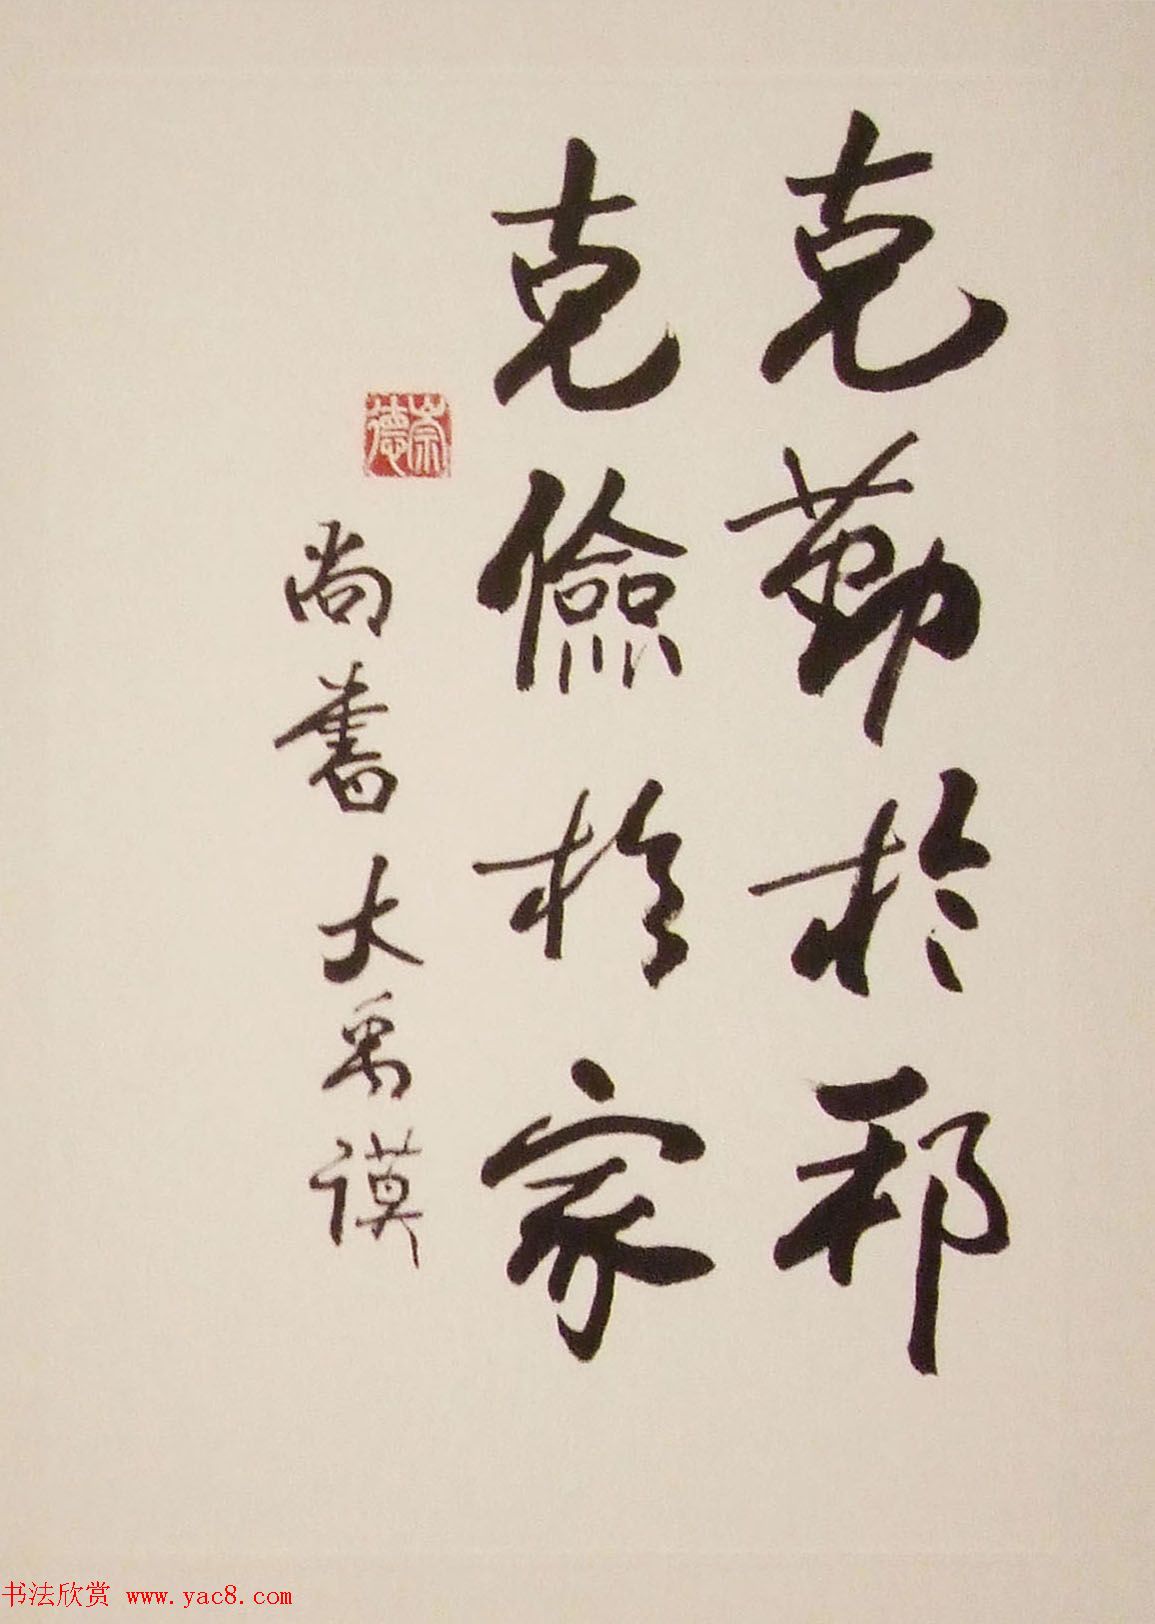 克勤於邦
克儉於家
崇德
尚書大禹謨
书法欣赏 www.yac8.com